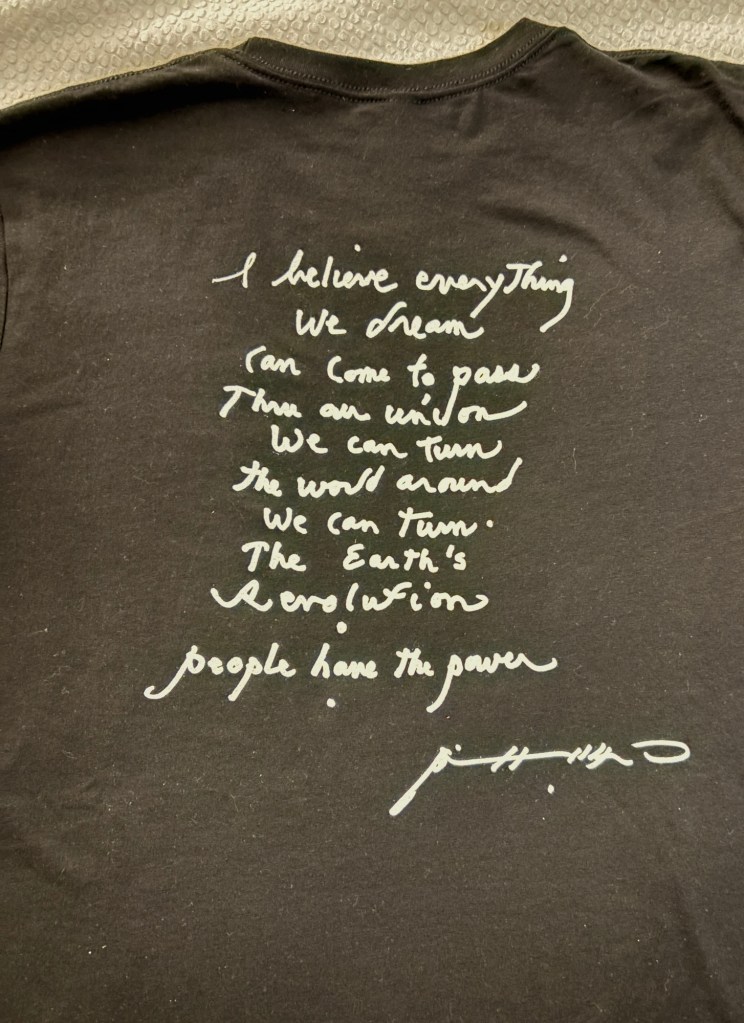 I believe everyThing
We dream
Can Come to pass
Thru our union
We can turn
the world around
We can turn.
The Earth's
Revolution
people have the power